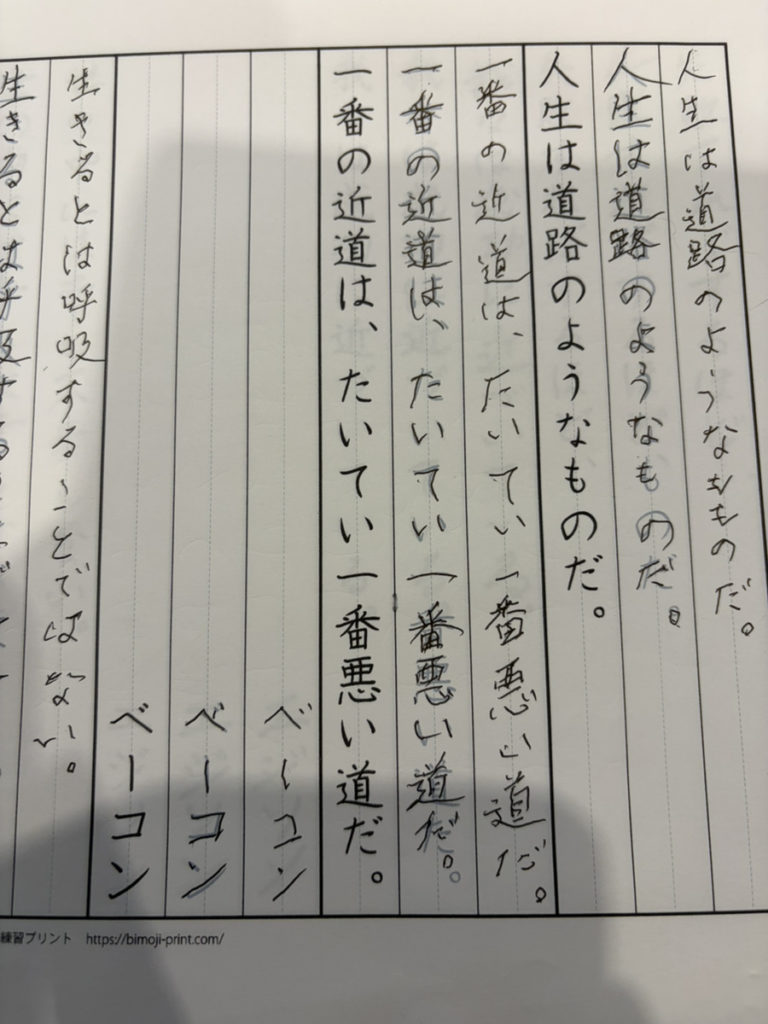 人生は道路のようなものだ。
人生は道路のようなものだ。
人生は道路のようなものだ。
一番の近道は、たいてい一番悪い道だ。
一番の近道は、たいてい一番悪い道だ。
一番の近道は、たいてい一番悪い道だ。
ベーコン
ベーコン
ベーコン
生きるとは呼吸することではない。
生きるとは呼吸する
練習プリント https://bimoji-print.com/